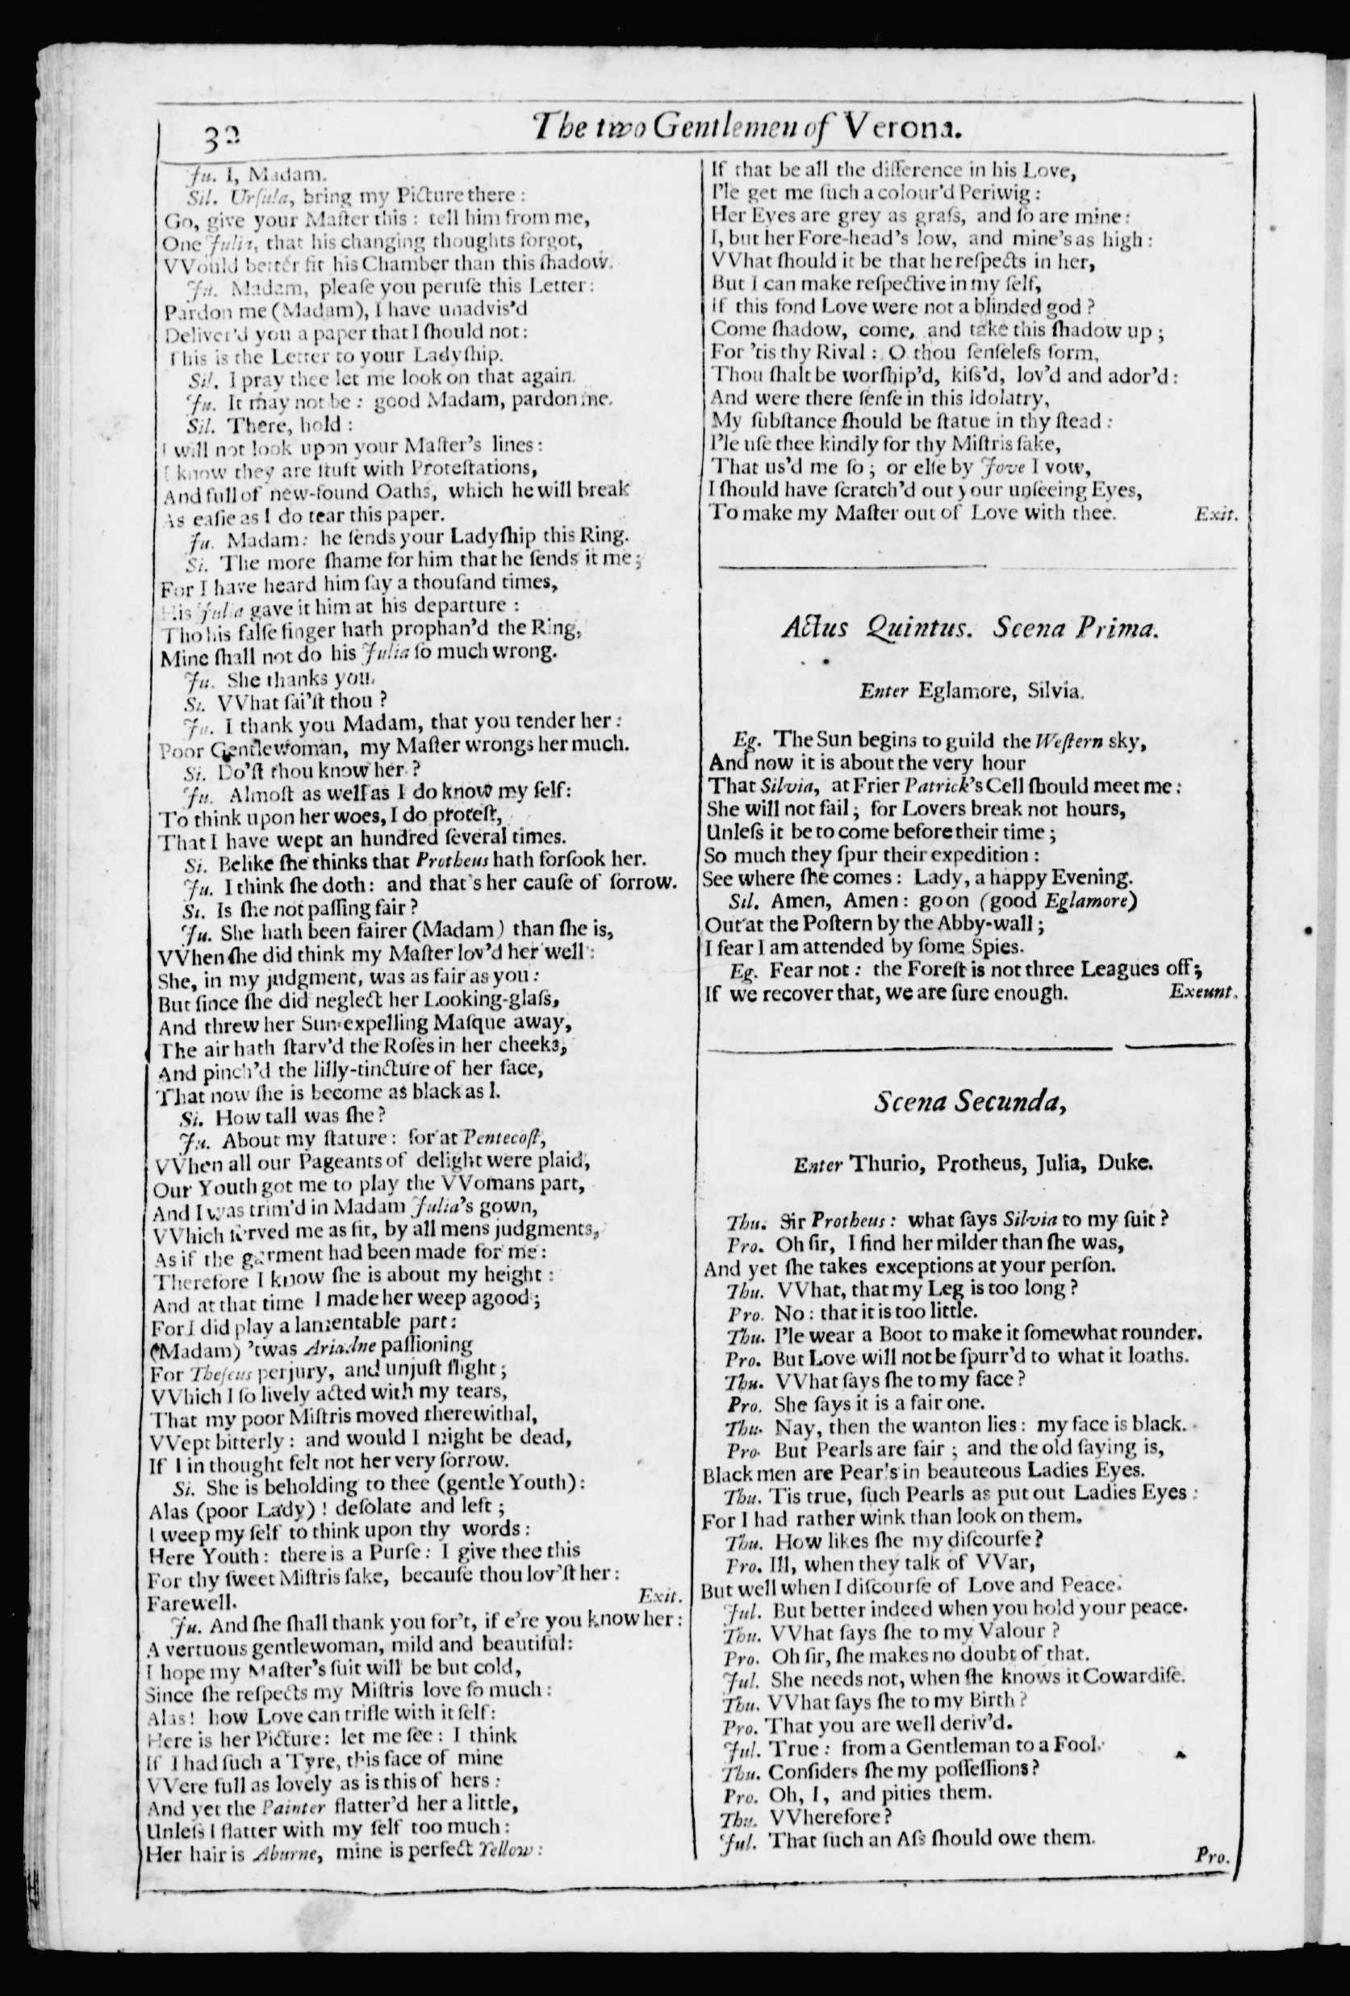 32
The two Gentlemen of Verona.
Ju. I, Madam.
Sil. Urſula, bring my Picture there:
Go, give your Maſter this: tell him from me,
One Julia, that his changing thoughts forgot,
VVould better fit his Chamber than this ſhadow.
Ju. Madam, pleaſe you peruſe this Letter:
Pardon me (Madam), I have unadvis'd
Deliver'd you a paper that I ſhould not:
This is the Letter to your Ladyſhip.
Sil. I pray thee let me look on that again.
Ju. It may not be: good Madam, pardon me.
Sil. There, hold:
I will not look upon your Maſter's lines:
I know they are ſtuft with Proteſtations,
And full of new-found Oaths, which he will break
As eaſie as I do tear this paper.
Ju. Madam: he ſends your Ladyſhip this Ring.
Si. The more ſhame for him that he ſends it me;
For I have heard him ſay a thouſand times,
His Julia gave it him at his departure:
Tho his falſe finger hath prophan'd the Ring,
Mine ſhall not do his Julia ſo much wrong.
Ju. She thanks you.
Si. VVhat ſai'ſt thou?
Ju. I thank you Madam, that you tender her:
Poor Gentlewoman, my Maſter wrongs her much.
Si. Do'ſt thou know her?
Ju. Almoſt as well as I do know my ſelf:
To think upon her woes, I do proteſt,
That I have wept an hundred ſeveral times.
Si. Belike ſhe thinks that Protheus hath forſook her.
Ju. I think ſhe doth: and that's her cauſe of ſorrow.
Si. Is ſhe not paſſing fair?
Ju. She hath been fairer (Madam) than ſhe is,
VVhen ſhe did think my Maſter lov'd her well:
She, in my judgment, was as fair as you:
But ſince ſhe did neglect her Looking-glaſs,
And threw her Sun-expelling Maſque away,
The air hath ſtarv'd the Roſes in her cheeks,
And pinch'd the lilly-tincture of her face,
That now ſhe is become as black as I.
Si. How tall was ſhe?
Ju. About my ſtature: for at Pentecoſt,
VVhen all our Pageants of delight were plaid,
Our Youth got me to play the VVomans part,
And I was trim'd in Madam Julia's gown,
VVhich ſerved me as fit, by all mens judgments,
As if the garment had been made for me:
Therefore I know ſhe is about my height:
And at that time I made her weep agood;
For I did play a lamentable part:
(Madam) 'twas Ariadne paſſioning
For Theſeus perjury, and unjuſt flight;
VVhich I ſo lively acted with my tears,
That my poor Miſtris moved therewithal,
VVept bitterly: and would I might be dead,
If I in thought felt not her very ſorrow.
Si. She is beholding to thee (gentle Youth):
Alas (poor Lady)! deſolate and left;
I weep my ſelf to think upon thy words:
Here Youth: there is a Purſe: I give thee this
For thy ſweet Miſtris ſake, becauſe thou lov'ſt her:
Farewell. Exit.
Ju. And ſhe ſhall thank you for't, if e're you know her:
A vertuous gentlewoman, mild and beautiful:
I hope my Maſter's ſuit will be but cold,
Since ſhe reſpects my Miſtris love ſo much:
Alas! how Love can trifle with it ſelf:
Here is her Picture: let me ſee: I think
If I had ſuch a Tyre, this face of mine
VVere full as lovely as is this of hers:
And yet the Painter flatter'd her a little,
Unleſs I flatter with my ſelf too much:
Her hair is Aburne, mine is perfect Yellow:
If that be all the difference in his Love,
I'le get me ſuch a colour'd Periwig:
Her Eyes are grey as graſs, and ſo are mine:
I, but her Fore-head's low, and mine's as high:
VVhat ſhould it be that he reſpects in her,
But I can make reſpective in my ſelf,
If this fond Love were not a blinded god?
Come ſhadow, come, and take this ſhadow up;
For 'tis thy Rival: O thou ſenſeleſs form,
Thou ſhalt be worſhip'd, kiſs'd, lov'd and ador'd:
And were there ſenſe in this Idolatry,
My ſubſtance ſhould be ſtatue in thy ſtead:
I'le uſe thee kindly for thy Miſtris ſake,
That us'd me ſo; or elſe by Jove I vow,
I ſhould have ſcratch'd out your unſeeing Eyes,
To make my Maſter out of Love with thee. Exit.
Actus Quintus. Scena Prima.
Enter Eglamore, Silvia.
Eg. The Sun begins to guild the Weſtern sky,
And now it is about the very hour
That Silvia, at Frier Patrick's Cell ſhould meet me:
She will not fail; for Lovers break not hours,
Unleſs it be to come before their time;
So much they ſpur their expedition:
See where ſhe comes: Lady, a happy Evening.
Sil. Amen, Amen: go on (good Eglamore)
Out at the Poſtern by the Abby-wall;
I fear I am attended by ſome Spies.
Eg. Fear not: the Foreſt is not three Leagues off;
If we recover that, we are ſure enough. Exeunt.
Scena Secunda,
Enter Thurio, Protheus, Julia, Duke.
Thu. Sir Protheus: what ſays Silvia to my ſuit?
Pro. Oh ſir, I find her milder than ſhe was,
And yet ſhe takes exceptions at your perſon.
Thu. VVhat, that my Leg is too long?
Pro. No: that it is too little.
Thu. I'le wear a Boot to make it ſomewhat rounder.
Pro. But Love will not be ſpurr'd to what it loaths.
Thu. VVhat ſays ſhe to my face?
Pro. She ſays it is a fair one.
Thu. Nay, then the wanton lies: my face is black.
Pro. But Pearls are fair; and the old ſaying is,
Black men are Pearls in beauteous Ladies Eyes.
Thu. Tis true, ſuch Pearls as put out Ladies Eyes:
For I had rather wink than look on them.
Thu. How likes ſhe my diſcourſe?
Pro. Ill, when they talk of VVar,
But well when I diſcourſe of Love and Peace.
Jul. But better indeed when you hold your peace.
Thu. VVhat ſays ſhe to my Valour?
Pro. Oh ſir, ſhe makes no doubt of that.
Jul. She needs not, when ſhe knows it Cowardiſe.
Thu. VVhat ſays ſhe to my Birth?
Pro. That you are well deriv'd.
Jul. True: from a Gentleman to a Fool.
Thu. Conſiders ſhe my poſſeſſions?
Pro. Oh, I, and pities them.
Thu. VVherefore?
Jul. That ſuch an Aſs ſhould owe them.
Pro.